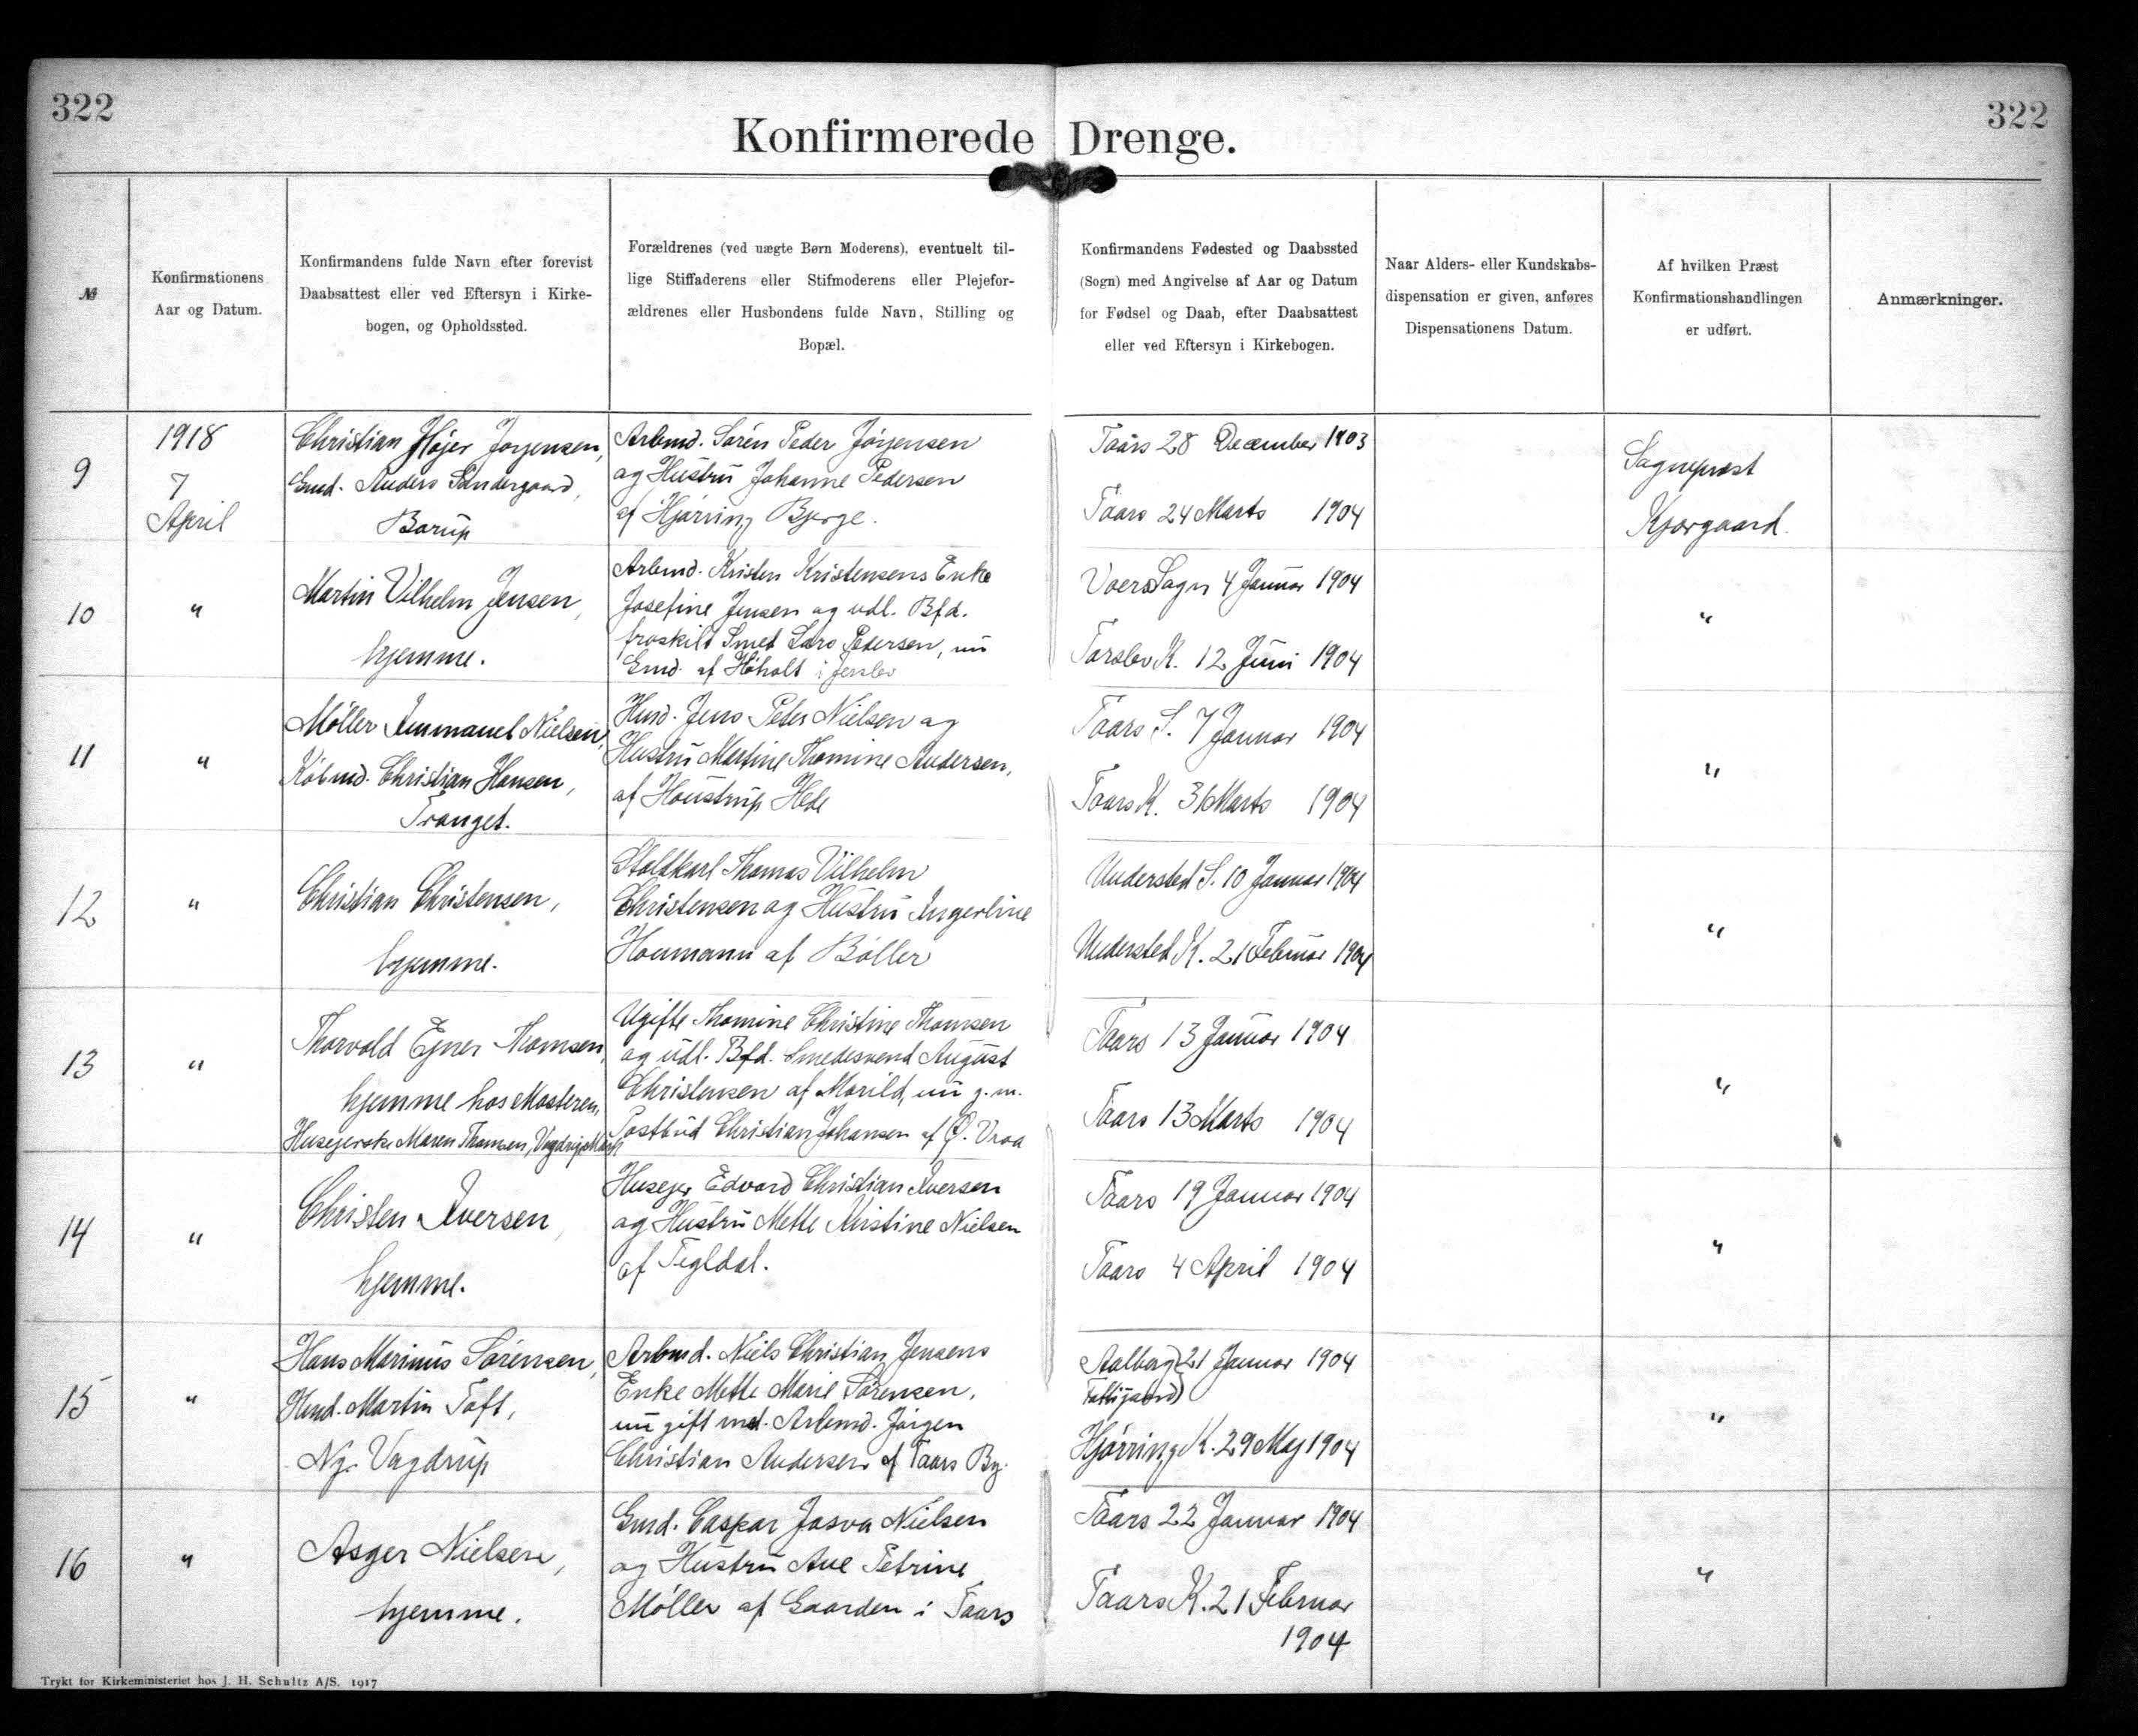 322
322
Konfirmerede Drenge.
№
Konfirmationens
Aar og Datum.
Konfirmandens fulde Navn efter forevist
Daabsattest eller ved Eftersyn i Kirke-
bogen, og Opholdssted.
Forældrenes (ved uægte Børn Moderens), eventuelt til-
lige Stiffaderens eller Stifmoderens eller Plejefor-
ældrenes eller Husbondens fulde Navn, Stilling og
Bopæl.
Konfirmandens Fødested og Daabssted
(Sogn) med Angivelse af Aar og Datum
for Fødsel og Daab, efter Daabsattest
eller ved Eftersyn i Kirkebogen.
Naar Alders- eller Kundskabs-
dispensation er given, anføres
Dispensationens Datum.
Af hvilken Præst
Konfirmationshandlingen
er udført.
Anmærkninger.
9
1918
7
April
Christian Højer Jørgensen,
Gmd. Anders Søndergaard,
Borup
Arbmd. Søren Peder Jørgensen
og Hustru Johanne Pedersen
af Hjørring Bjerge.
Taars 28 December 1903
Taars 24 Marts 1904
Sognepræst
Kjærgaard.
10
"
Martin Vilhelm Jensen,
hjemme.
Arbmd. Kristen Kristensens Enke
Josefine Jensen og udl. Bfd.
fraskilt Smed Lars Pedersen, nu
Gmd. af Høholt i Jerslev
Voer Sogn 4 Januar 1904
Torslev K. 12 Juni 1904
"
11
"
Møller Immanuel Nielsen,
Købmd. Christian Hansen,
Tranget.
Husd. Jens Peter Nielsen og
Hustru Martine Thomine Andersen,
af Houstrup Hede
Taars S. 7 Januar 1904
Taars K. 31 Marts 1904
"
12
"
Christian Christensen,
hjemme.
Staldkarl Thomas Vilhelm
Christensen og Hustru Ingerline
Houmann af Bøller
Understed S. 10 Januar 1904
Understed K. 21 Februar 1904
"
13
"
Thorvald Ejner Thomsen,
hjemme hos Mosteren,
Husejerske Maren Thomsen, Vogdrup Mark
Ugifte Thomine Christine Thomsen
og udl. Bfd. Smedesvend August
Christensen af Morild, nu g. m.
Postbud Christian Johansen af Ø. Vraa
Taars 13 Januar 1904
Taars 13 Marts 1904
"
14
"
Christen Iversen,
hjemme.
Husejer Edvard Christian Iversen
og Hustru Mette Kristine Nielsen
af Tegldal.
Taars 19 Januar 1904
Taars 4 April 1904
"
15
"
Hans Marinus Sørensen,
Hmd. Martin Toft,
Ng. Vogdrup
Arbmd. Niels Christian Jensens
Enke Mette Marie Sørensen,
nu gift med. Arbmd. Jørgen
Christian Andersen af Taars By.
Aalborg (21 Januar 1904
Fattiggaard)
Hjørring K. 29 Maj 1904
"
16
"
Asger Nielsen,
hjemme.
Gmd. Caspar Josva Nielsen
og Hustru Ane Petrine
Møller af Gaarden i Taars
Taars 22 Januar 1904
Taars K. 21 Februar
1904
"
Trykt for Kirkeministeriet hos J. H. Schultz A/S. 1917